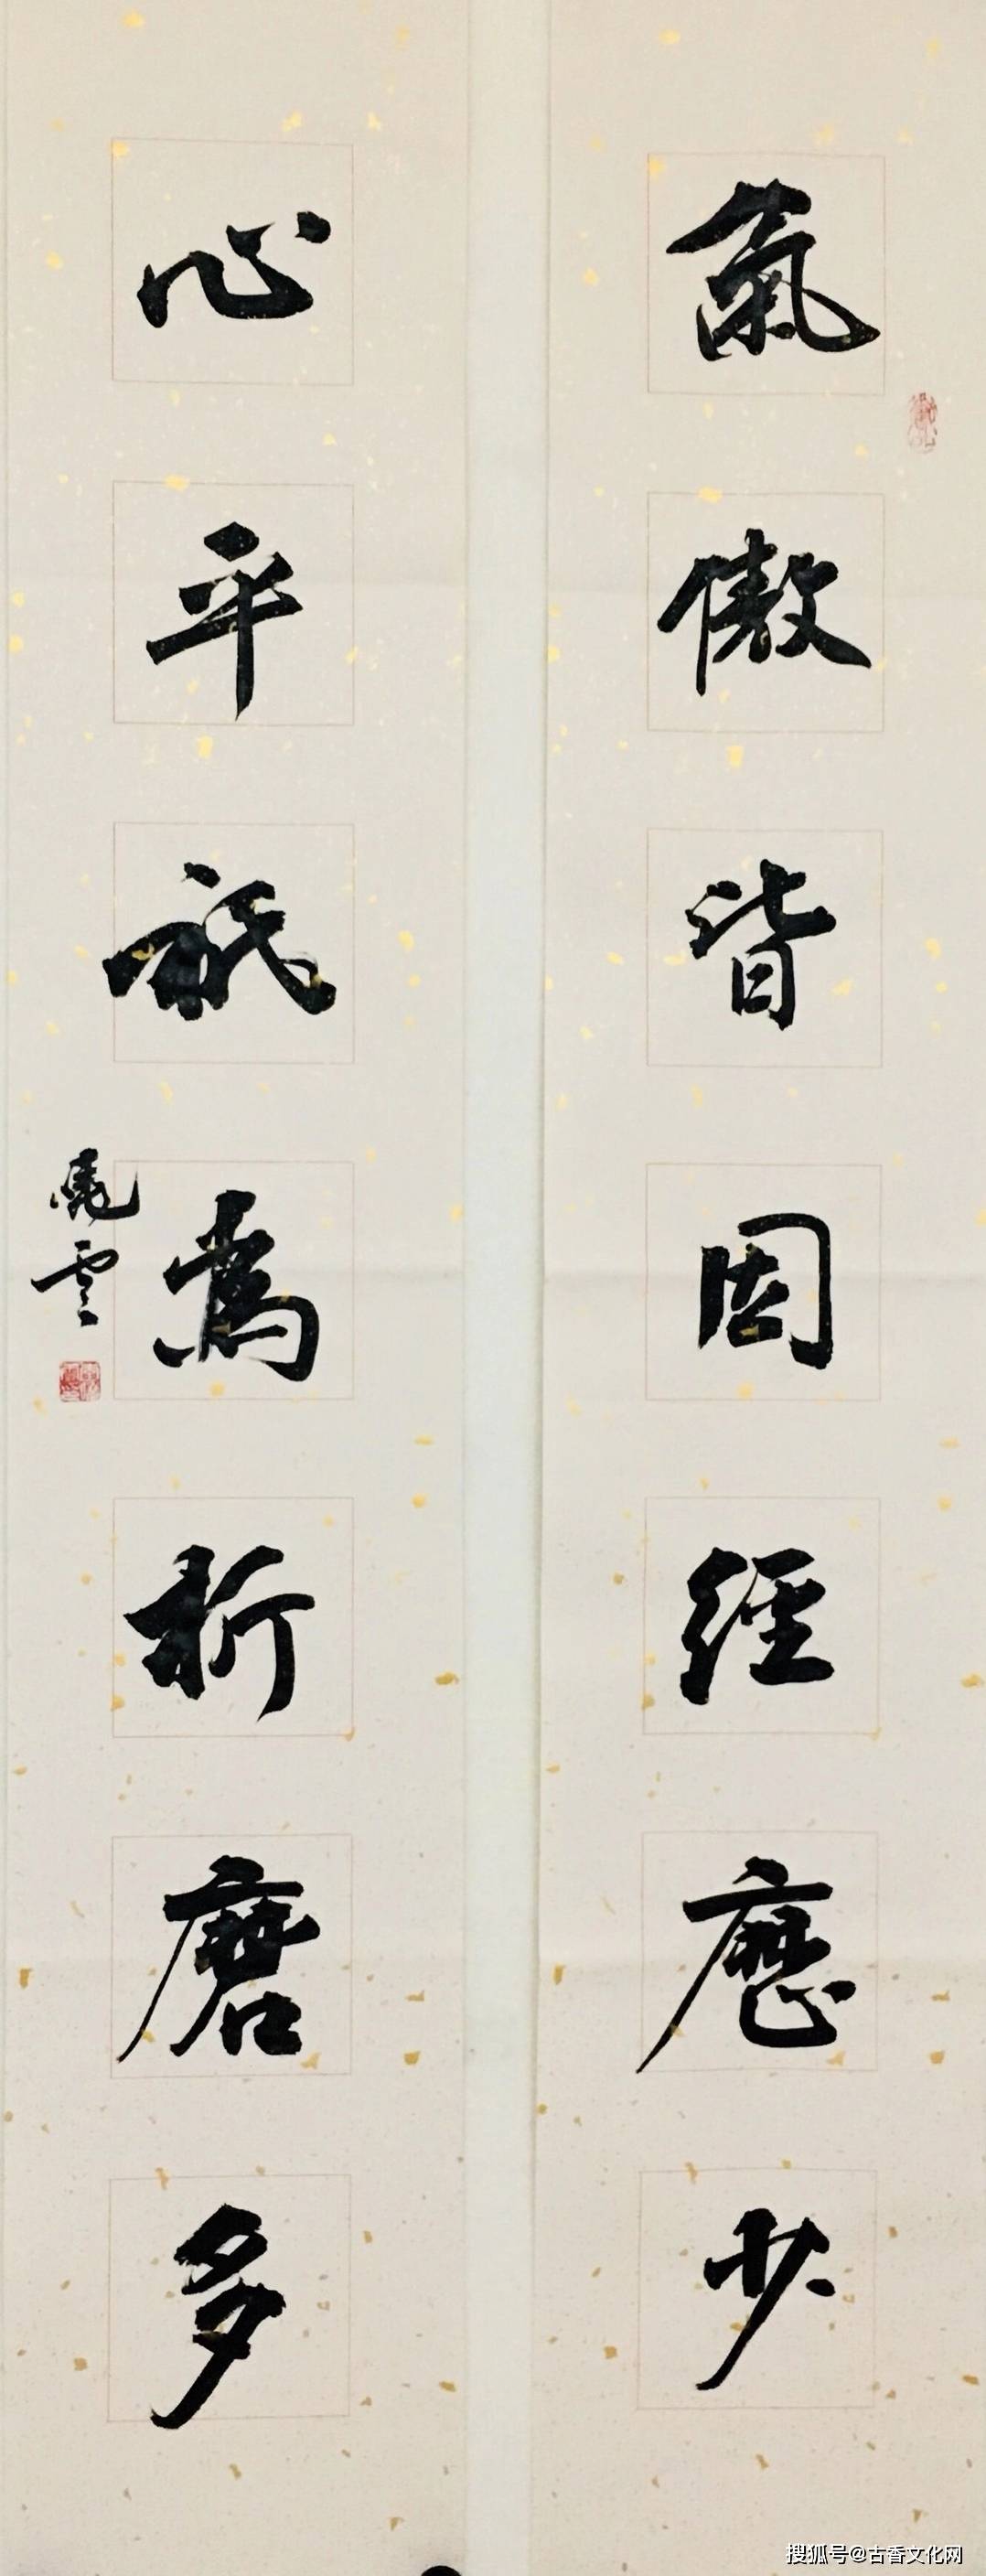 氣傲皆因經歷少
心平祇為折磨多
晓雲
搜狐号@古香文化网